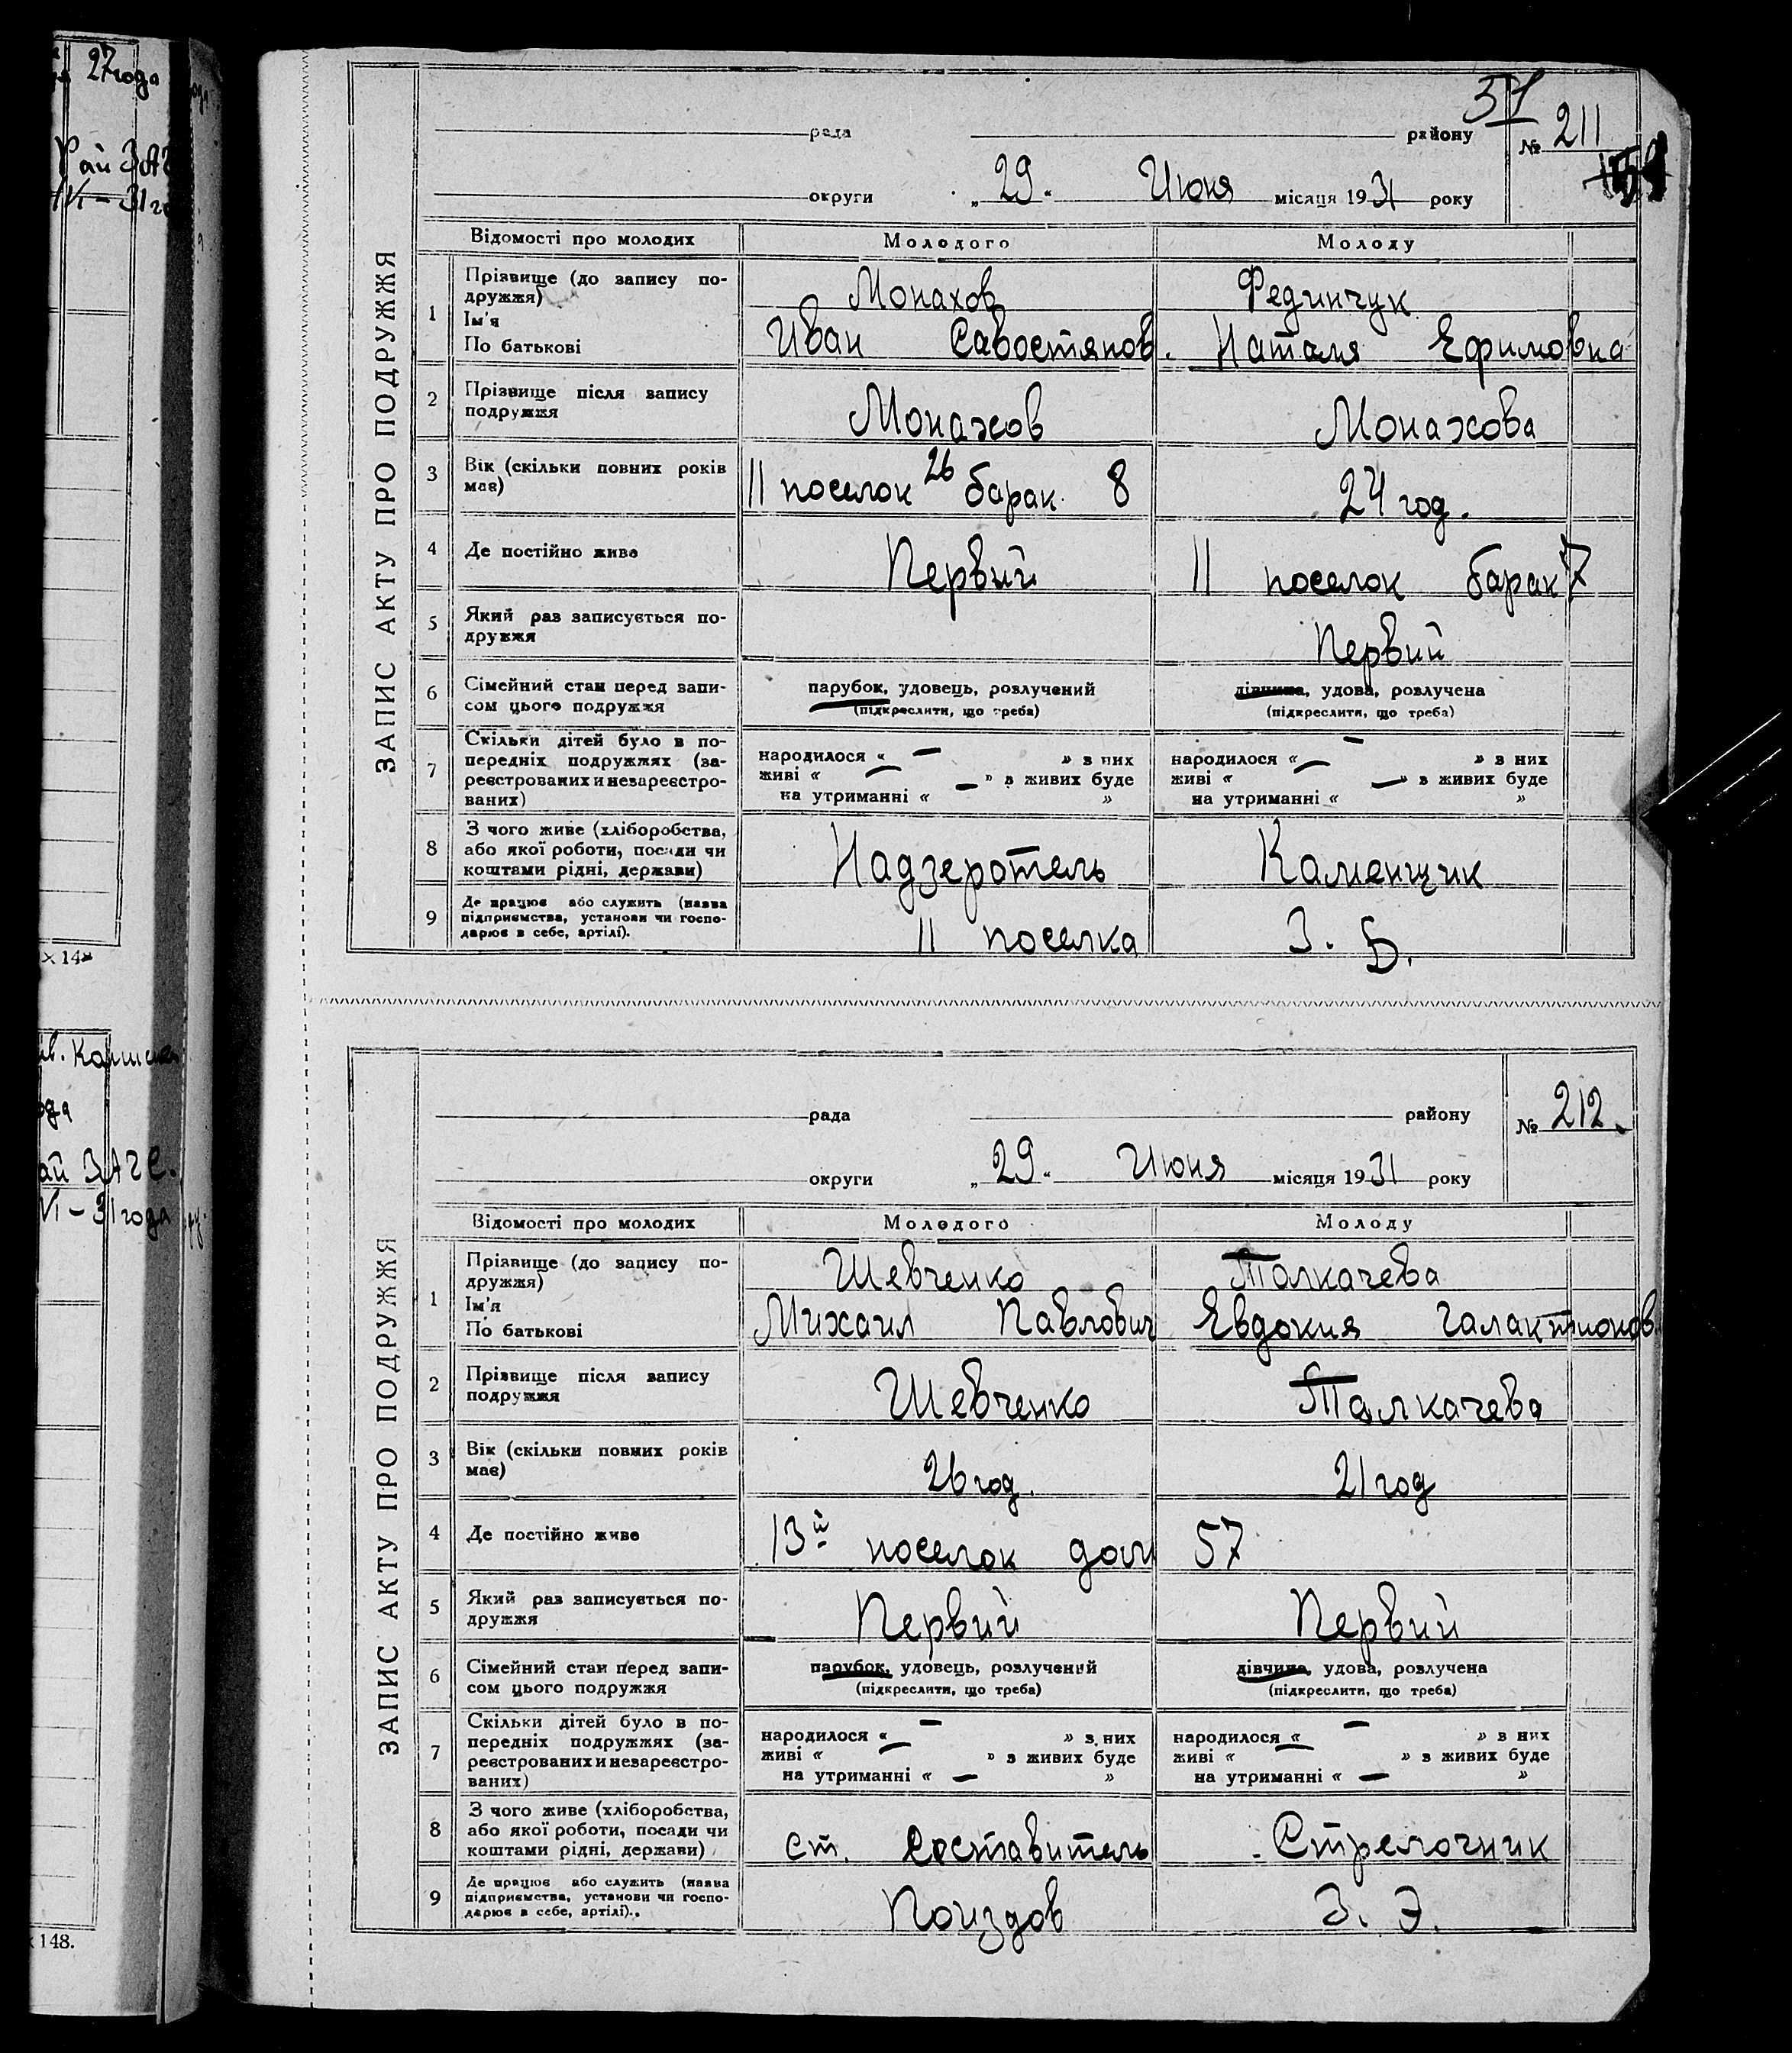 27 года
Рай ЗАГ
VI – 31 г
× 148
Каписная
ода
ай ЗАГС.
VI – 31 года
× 148.
ЗАПИС АКТУ ПРО ПОДРУЖЖЯ
51
рада району № 211
округи „ 29 “ Июня місяця 1931 року
Відомості про молодих Молодого Молоду
1 Прізвище (до запису по-
дружжя) Монахов Фединчук
Ім'я
По батькові Иван Савостянов. Наталя Ефимовна
2 Прізвище після запису
подружжя Монахов Монахова
3 Вік (скільки повних років
має) 11 поселок 26 барак 8 24 год.
4 Де постійно живе Первий 11 поселок барак 7
5 Який раз записується по-
дружжя Первий
6 Сімейний стан перед запи- парубок, удовець, розлучений дівчина, удова, розлучена
сом цього подружжя (підкреслити, що треба) (підкреслити, що треба)
7 Скільки дітей було в по-
передніх подружжях (за- народилося « — » з них народилося « — » з них
реєстрованих и незареєстро- живі « — » з живих буде живі « — » з живих буде
ваних) на утриманні « — » на утриманні « — »
8 З чого живе (хліборобства,
або якої роботи, посади чи
коштами рідні, держави) Надзеротель Каменщик
9 Де працює або служить (назва
підприємства, установи чи госпо-
дарює в себе, артілі). 11 поселка З. Б.
ЗАПИС АКТУ ПРО ПОДРУЖЖЯ
рада району № 212.
округи „ 29 “ Июня місяця 1931 року
Відомості про молодих Молодого Молоду
1 Прізвище (до запису по-
дружжя) Шевченко Талкачева
Ім'я
По батькові Михаил Павлович Евдокия Галактионов.
2 Прізвище після запису
подружжя Шевченко Талкачева
3 Вік (скільки повних років
має) 26 год. 21 год
4 Де постійно живе 13й поселок дом 57
5 Який раз записується по-
дружжя Первий Первий
6 Сімейний стан перед запи- парубок, удовець, розлучений дівчина, удова, розлучена
сом цього подружжя (підкреслити, що треба) (підкреслити, що треба)
7 Скільки дітей було в по-
передніх подружжях (за- народилося « — » з них народилося « — » з них
реєстрованих и незареєстро- живі « — » з живих буде живі « » з живих буде
ваних) на утриманні « — » на утриманні « — »
8 З чого живе (хліборобства,
або якої роботи, посади чи
коштами рідні, держави) ст. Составитель Стрелочник
9 Де працює або служить (назва
підприємства, установи чи госпо-
дарює в себе, артілі). Поиздов З. Э.